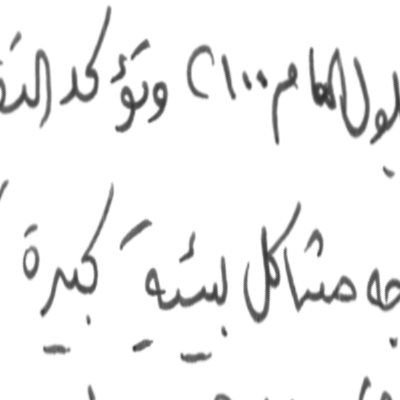 العام ٢١٠٠ وتؤكد
جه مشاكل بيئية كبيرة